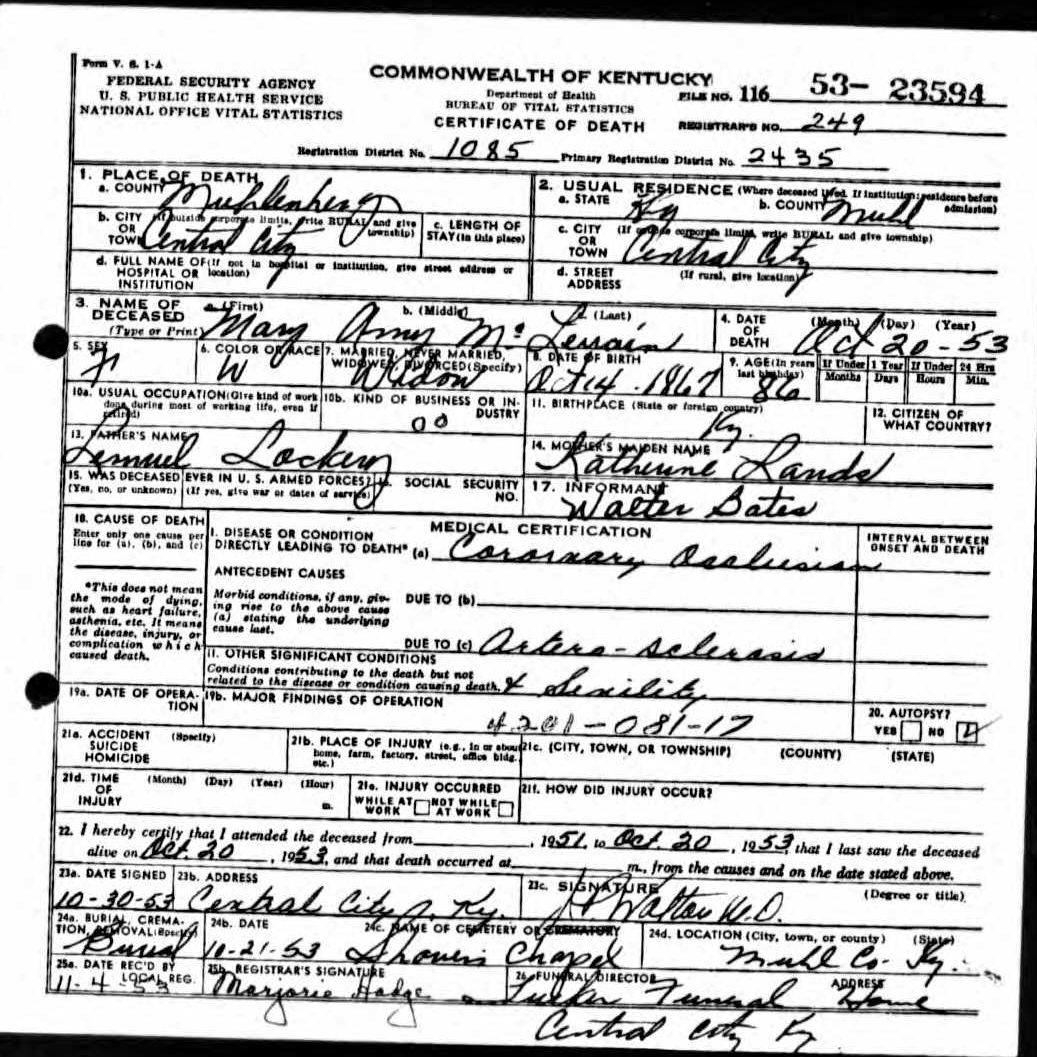 Form V. S. 1-A
FEDERAL SECURITY AGENCY
U. S. PUBLIC HEALTH SERVICE
NATIONAL OFFICE VITAL STATISTICS
COMMONWEALTH OF KENTUCKY
Department of Health
BUREAU OF VITAL STATISTICS
CERTIFICATE OF DEATH
FILE NO. 116 53- 23594
REGISTRAR'S NO. 249
Registration District No. 1085 Primary Registration District No. 2435
1. PLACE OF DEATH
a. COUNTY Muhlenberg
2. USUAL RESIDENCE (Where deceased lived. If institution: residence before admission)
a. STATE Ky b. COUNTY Muhl
b. CITY (If outside corporate limits, write RURAL and give township)
OR
TOWN Central City
c. LENGTH OF STAY (in this place)
c. CITY (If outside corporate limits, write RURAL and give township)
OR
TOWN Central City
d. FULL NAME OF (If not in hospital or institution, give street address or location)
HOSPITAL OR
INSTITUTION
d. STREET (If rural, give location)
ADDRESS
3. NAME OF DECEASED
(Type or Print)
a. (First) b. (Middle) c. (Last)
Mary Amy Mc
4. DATE OF DEATH (Month) (Day) (Year)
Oct 20-53
5. SEX
F
6. COLOR OR RACE
W
7. MARRIED, NEVER MARRIED, WIDOWED, DIVORCED (Specify)
Widow
8. DATE OF BIRTH
Oct 4 1867
9. AGE (In years last birthday) If Under 1 Year If Under 24 Hrs
Months Days Hours Min.
86
10a. USUAL OCCUPATION (Give kind of work done during most of working life, even if retired)
10b. KIND OF BUSINESS OR INDUSTRY
00
11. BIRTHPLACE (State or foreign country)
Ky.
12. CITIZEN OF WHAT COUNTRY?
13. FATHER'S NAME
Lemuel Lockery
14. MOTHER'S MAIDEN NAME
Katherine Lands
15. WAS DECEASED EVER IN U. S. ARMED FORCES?
(Yes, no, or unknown) (If yes, give war or dates of service)
SOCIAL SECURITY NO.
17. INFORMANT
Walter Bates
18. CAUSE OF DEATH
Enter only one cause per line for (a), (b), and (c)
MEDICAL CERTIFICATION
INTERVAL BETWEEN ONSET AND DEATH
I. DISEASE OR CONDITION
DIRECTLY LEADING TO DEATH* (a) Coronary Occlusion
*This does not mean the mode of dying, such as heart failure, asthenia, etc. It means the disease, injury, or complication which caused death.
ANTECEDENT CAUSES
Morbid conditions, if any, giving rise to the above cause (a) stating the underlying cause last.
DUE TO (b)
DUE TO (c) Artero-sclerosis
II. OTHER SIGNIFICANT CONDITIONS
Conditions contributing to the death but not related to the disease or condition causing death. & Senility
19a. DATE OF OPERATION
19b. MAJOR FINDINGS OF OPERATION
4201-081-17
20. AUTOPSY?
YES NO
21a. ACCIDENT (Specify)
SUICIDE
HOMICIDE
21b. PLACE OF INJURY (e.g., in or about home, farm, factory, street, office bldg. etc.)
21c. (CITY, TOWN, OR TOWNSHIP) (COUNTY) (STATE)
21d. TIME (Month) (Day) (Year) (Hour)
OF
INJURY m.
21e. INJURY OCCURRED
WHILE AT WORK NOT WHILE AT WORK
21f. HOW DID INJURY OCCUR?
22. I hereby certify that I attended the deceased from , 1951, to Oct. 20, 1953, that I last saw the deceased
alive on Oct. 20, 1953, and that death occurred at m., from the causes and on the date stated above.
23a. DATE SIGNED
10-30-53
23b. ADDRESS
Central City, Ky.
23c. SIGNATURE (Degree or title)
Walton M.D.
24a. BURIAL, CREMATION, REMOVAL (Specify)
Burial
24b. DATE
10-21-53
24c. NAME OF CEMETERY OR CREMATORY
Shavers Chapel
24d. LOCATION (City, town, or county) (State)
Muhl Co. Ky.
25a. DATE REC'D BY LOCAL REG.
11-4-53
25b. REGISTRAR'S SIGNATURE
Marjorie Hodge
26. FUNERAL DIRECTOR ADDRESS
Tucker Funeral Home
Central City Ky